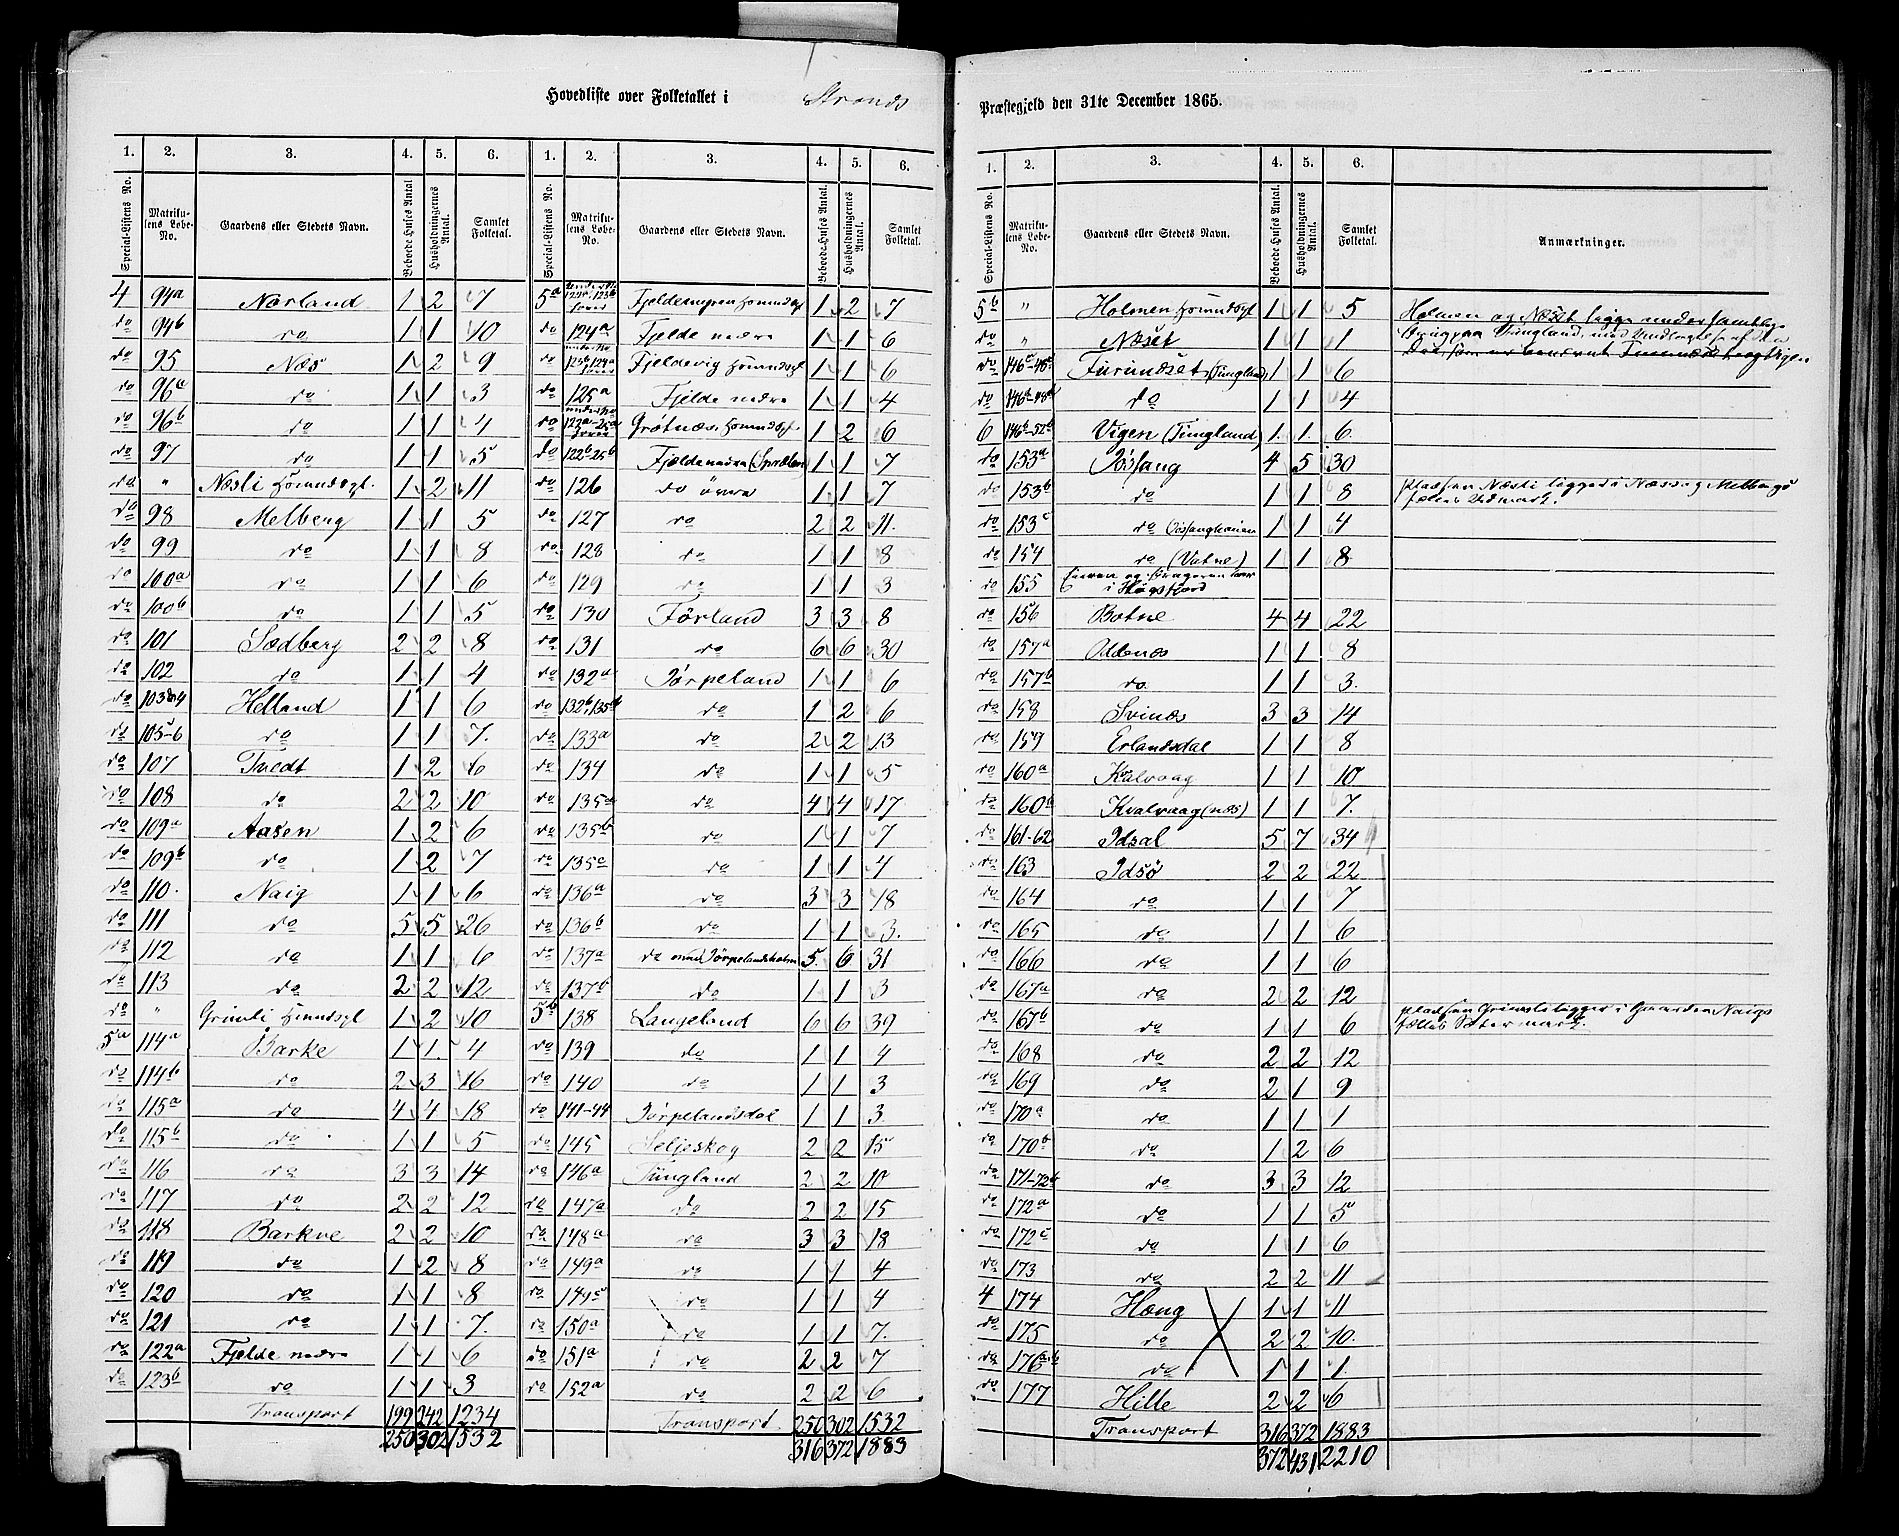 Hovedliste over Folketallet i Strands Præstegjeld den 31te December 1865.
1. 2. 3. 4. 5. 6. 1. 2. 3. 4. 5. 6.
Special-Listens No. Matrikulens Løbe-No. Gaardens eller Stedets Navn. Beboede Huses Antal Husholdningernes Antal. Samlet Folketal. Special-Listens No. Matrikulens Løbe-No. Gaardens eller Stedets Navn. Beboede Huses Antal. Husholdningernes Antal. Samlet Folketal.
4 94a Norland 1 2 7
do 94b do 1 1 10
do 95 Næs 1 2 9
do 96a do 1 1 3
do 96b do 1 1 4
do 97 do 1 1 5
do " Næsli Huusmdspl. 1 2 11
do 98 Melberg 1 1 5
do 99 do 1 1 8
do 100a do 1 1 6
do 100b do 1 1 5
do 101 Sædberg 2 2 8
do 102 do 1 1 4
do 103-4 Helland 1 1 6
do 105-6 do 1 1 7.
do 107 Tvedt 1 2 6
do 108 do 2 2 10
do 109a Aasen 1 2 6
do 109b do 1 2 7
do 110. Naig 1 1 6
do 111 do 5 5 26
do 112 do 1 1 6
do 113 do 2 2 12
do " Grimli 1 2 10
5a 114a Barke 1 1. 4
do 114b do 2 3 16
do 115a do 4 4 18
do 115b do 1 1 5
do 116 do 3 3 14
do 117 do 2 2 12
do 118 Barkve 2 2 10
do 119 do 1 2 8
do 120 do 1 1 8
do 121 do 1 1 7.
do 122a Fjelde nedre 1 1 6
do 123b do 1 1 3
Transport 199 242 1234
250 302 1532
5a Fjeldemyren 1 2 7
do 124a Fjelde nedre 1 1 6
do Fjeldevig 1 1 6
do 125a Fjelde nedre 1 1 4
do Grøtnæs 1 2 6
do 122b-25b Fjelde nedre 1 1 7
do 126 do øvre 1 1 7
do 127 do 2 2 11.
do 128 do 1 1 8
do 129 do 1 1 3
do 130 Førland 3 3 8
do 131 do 6 6 30
do 132a Jørpeland 1 1 6
do 132b, 135d do 1 2 6
do 133a do 2 2 13
do 134 do 1 1 5
do 135a do 4 4 17
do 135b do 1 1 7
do 135c do 1 1 4
do 136a do 3 3 18
do 136b do 1 1 3.
do 137a do med Jørpelandsholm 5. 6 31
do 137b do 1 1 3
5b 138 Langeland 6 6 39
do 139 do 1 1 4
do 140 do 1 1 3
do 141-44 Jørpelandsdal 1 1 3.
do 145 Seljeskog 2 2 15
do 146a Tungland 2 2 10
do 147a do 2 2 15
do 148a do 3 3 18
do 149a do 1 1 4
do 149c do 1 1 4
do 150a do 1 1 7.
do 151a do 2 2 7
do 152a do 2 2 6
Transport. 250 302 1532
316 372 1883
1. 2. 3. 4. 5. 6.
Special-Listens No. Matrikulens Løbe-No. Gaardens eller Stedets Navn. Beboede Huses Antal. Husholdningernes Antal. Samlet Folketal. Anmærkninger.
5b " Holmen 1 1 5 Holmen og Næset ligge under samtlige
do " Næset 1 1 1
do Furundset (Tungland) 1 1 6
do do 1 1 4
6 Vigen (Tungland) 1. 1. 6.
do 153a Jøssang 4 5 30
do 153b do 1 1 8 pladsen Næsli ligger i Næs og Melbergs fælles Udmark.
do 153c do 1 1 4
do 154 do (Vatne) 1 1 8
do 155 i Høgsfjord
do 156 Botne 4 4 22
do 157a Oddenæs 1 1 8
do 157b do 1 1 3.
do 158 Svinæs 3 3 14
do 159 Erlandsdal 1 1 8
do 160a Kalvaag 1 1 10
do 160b Kvalvaag (næs) 1 1 7.
do 161-62 Idsal 5 7 34
do 163 Idsø 2 2 22
do 164 do 1 1 7
do 165 do 1 1 6
do 166 do 1 1 6
do 167a do 2 2 12
do 167b do 1 1 6 pladsen Grimli ligger i Gaarden Naigs fælles Sætermark.
do 168 do 2 2 12
do 169 do 2 1 9
do 170a do 1 1 1
do 170b do 1 2 6
do 171-72b do 3 3 12
do 172a do 1 1 5
do 172c do 1 1 6
do 173 do 2 2 11
4 174 Houg 1 1 11
do 175 do 2 2 10.
do 176a-b do 1 1 1.
do 177 Hille 2 2 6
Transport 316 372 1883
372 431 2210